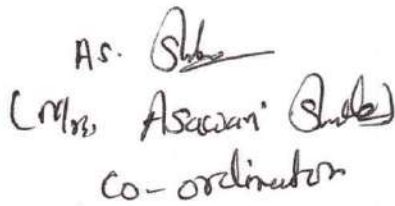 As. Shuke
(Mrs. Asawari Shuke)
Co-ordinator